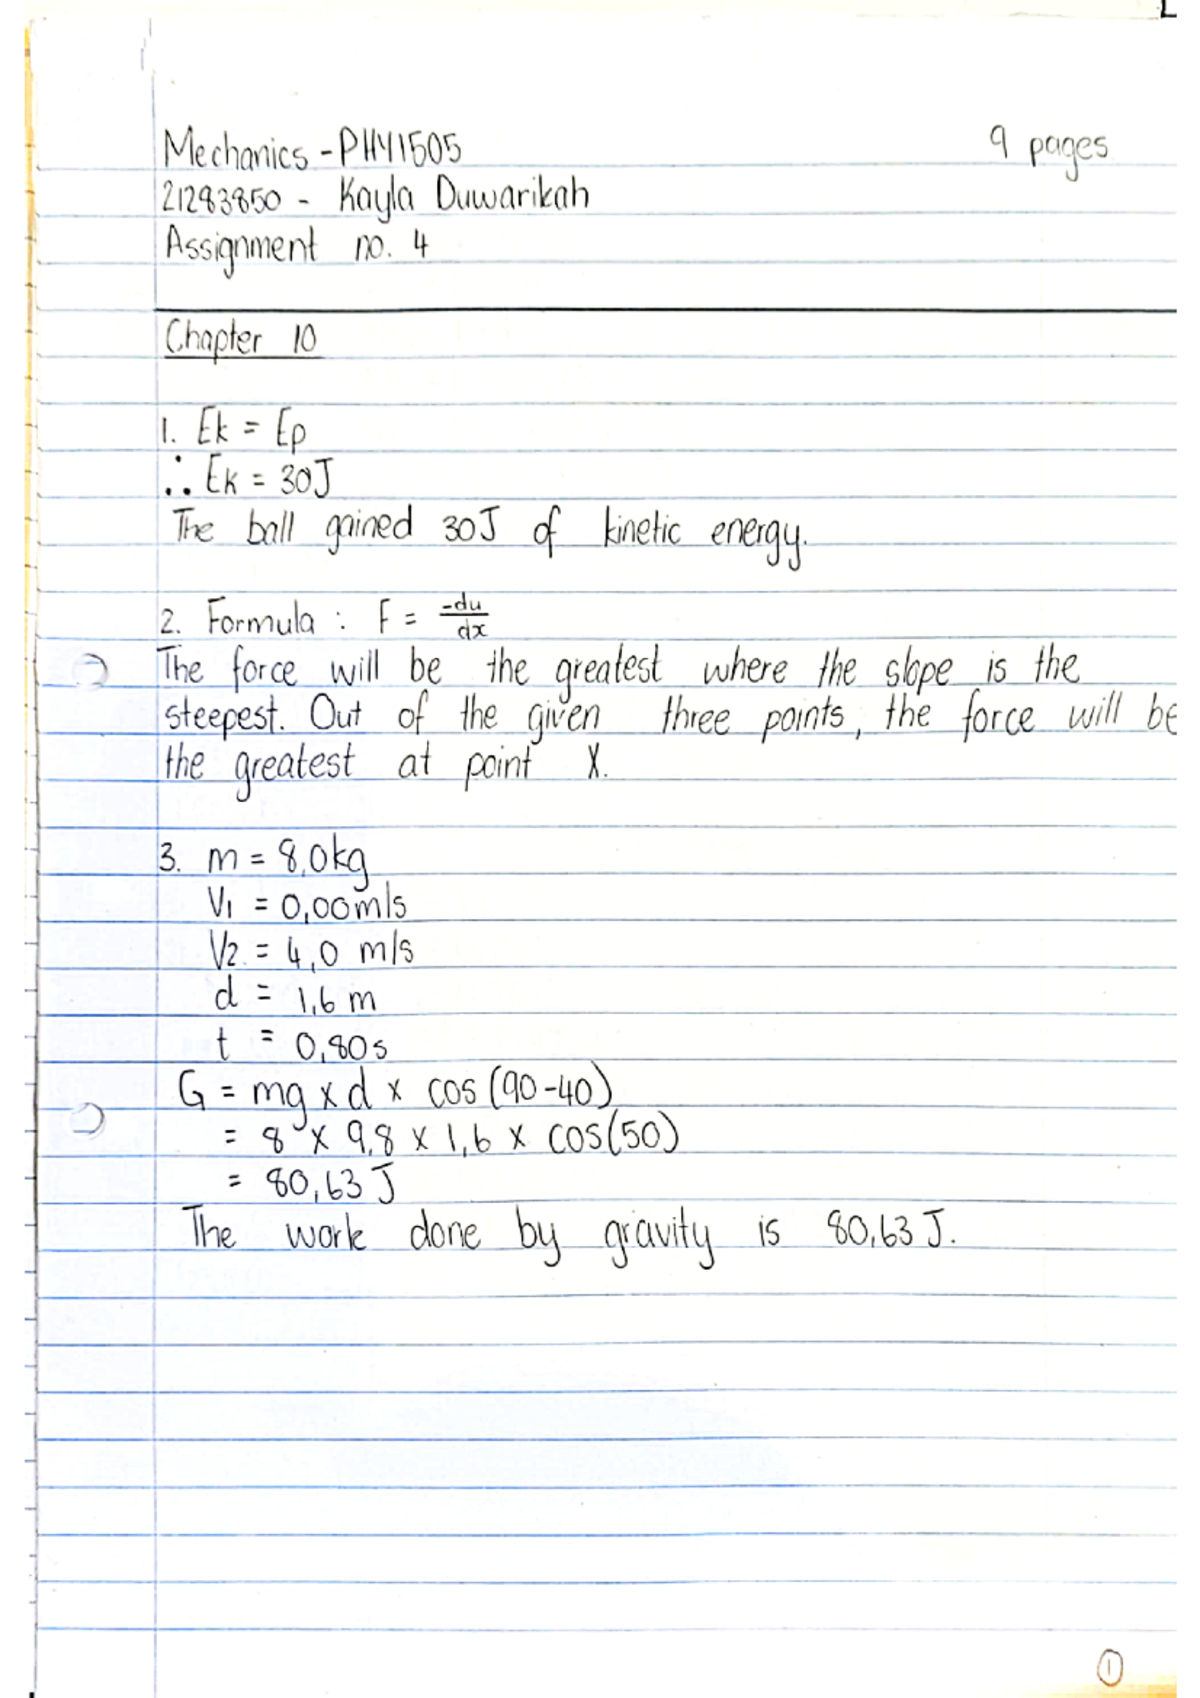 Mechanics - PHY1505
9 pages
21283850 - Kayla Duwarikah
Assignment no. 4
Chapter 10
1. Ek = Ep
∴ Ek = 30J
The ball gained 30J of kinetic energy.
2. Formula : F = -du/dx
The force will be the greatest where the slope is the
steepest. Out of the given three points, the force will be
the greatest at point X.
3. m = 8,0kg
V1 = 0,00m/s
V2 = 4,0 m/s
d = 1,6 m
t = 0,80s
G = mg x d x cos (90-40)
= 8 x 9,8 x 1,6 x cos(50)
= 80,63 J
The work done by gravity is 80,63 J.
1